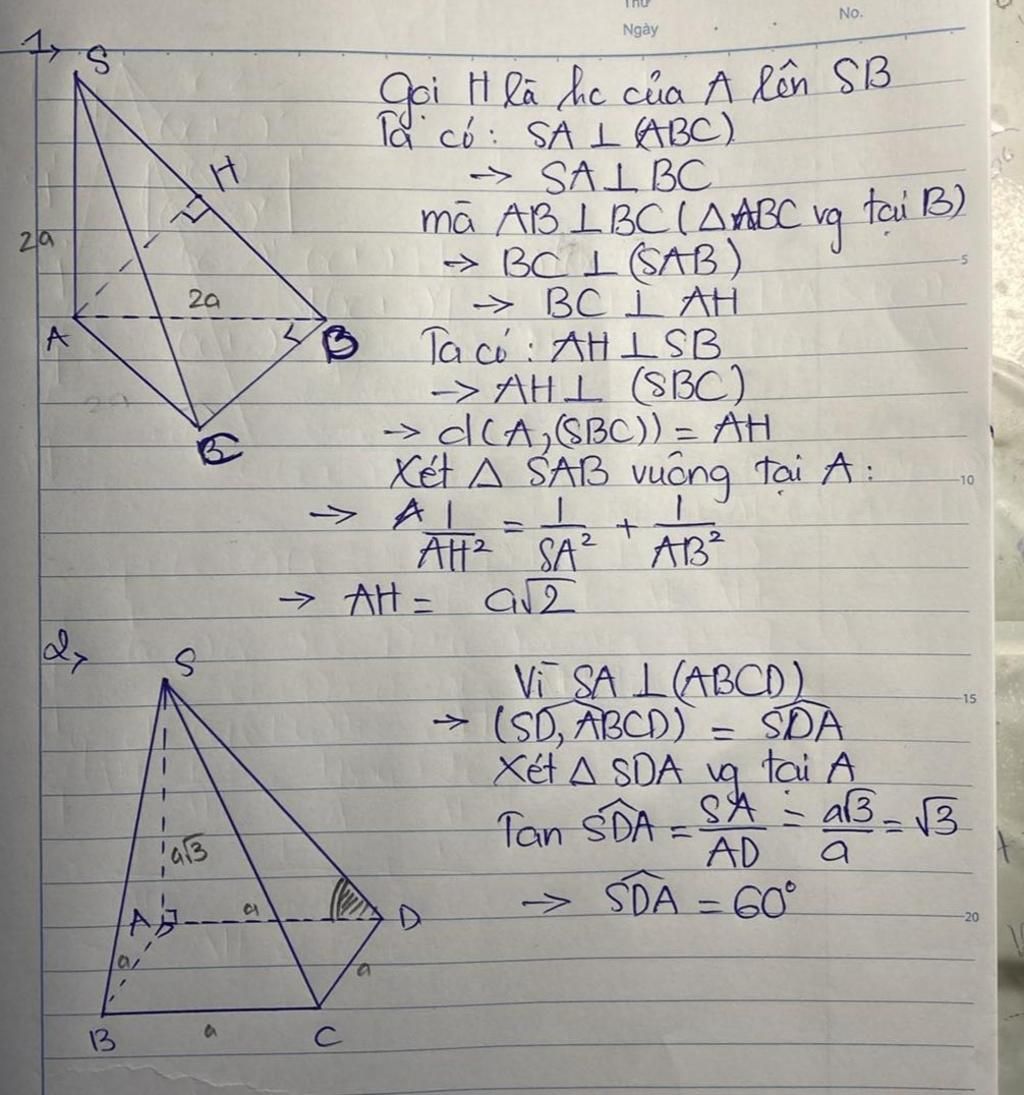 Thứ
Ngày
No.
1,
S
H
2a
2a
A
B
C
Gọi H là hc của A lên SB
Ta có: SA ⊥ (ABC)
→ SA ⊥ BC
mà AB ⊥ BC (△ABC vg tại B)
→ BC ⊥ (SAB)
→ BC ⊥ AH
Ta có: AH ⊥ SB
→ AH ⊥ (SBC)
→ d(A,(SBC)) = AH
Xét △ SAB vuông tại A:
→ 1/AH² = 1/SA² + 1/AB²
→ AH = a√2
5
10
15
20
2,
S
a√3
A
a
D
a
a
B
a
C
Vì SA ⊥ (ABCD)
→ (SD, ABCD)^ = SDA^
Xét △ SDA vg tại A
Tan SDA^ = SA/AD = a√3/a = √3
→ SDA^ = 60°